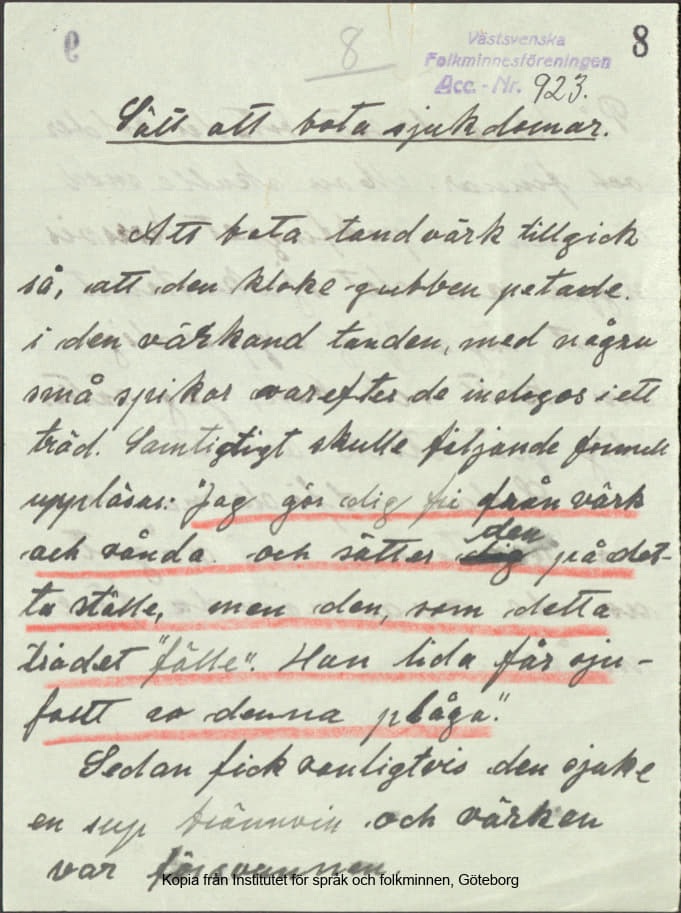 8
8
Västsvenska
Folkminnesföreningen
Acc.-Nr. 923.
Sätt att bota sjukdomar.
Att bota tandvärk tillgick
så, att den kloke gubben petade
i den värkand tanden, med några
små spikor varefter de inslogos i ett
träd. Samtigtigt skulle följande formel
uppläsas: "Jag gör dig fri från värk
och vånda och sätter den på det-
ta ställe, men den, som detta
trädet "fälle". Han lida får sju-
falt av denna plåga."
Sedan fick vanligtvis den sjuke
en sup brännvin och värken
var försvunnen
Kopia från Institutet för språk och folkminnen, Göteborg